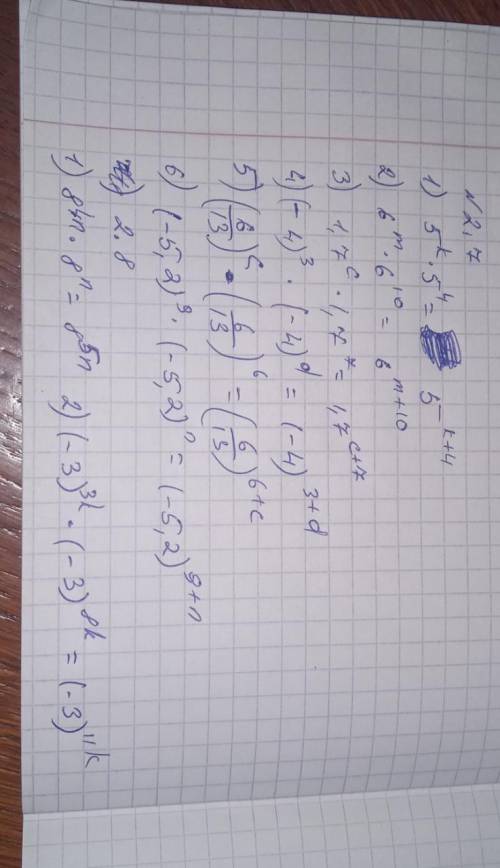 N 2,7
1) 5^k · 5^4 = 5^k+4
2) 6^m · 6^10 = 6^m+10
3) 1,7^c · 1,7^7 = 1,7^c+7
4) (-4)^3 · (-4)^d = (-4)^3+d
5) (6/13)^c · (6/13)^6 = (6/13)^6+c
6) (-5,2)^9 · (-5,2)^n = (-5,2)^9+n
2.8
1) 8^4n · 8^n = 8^5n 2) (-3)^3k · (-3)^8k = (-3)^11k